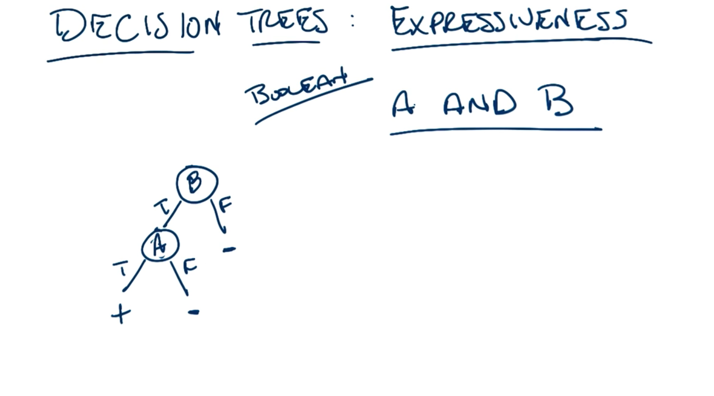 DECISION TREES : EXPRESSIVENESS
BOOLEAN
A AND B
B
T F
A -
T F
+ -